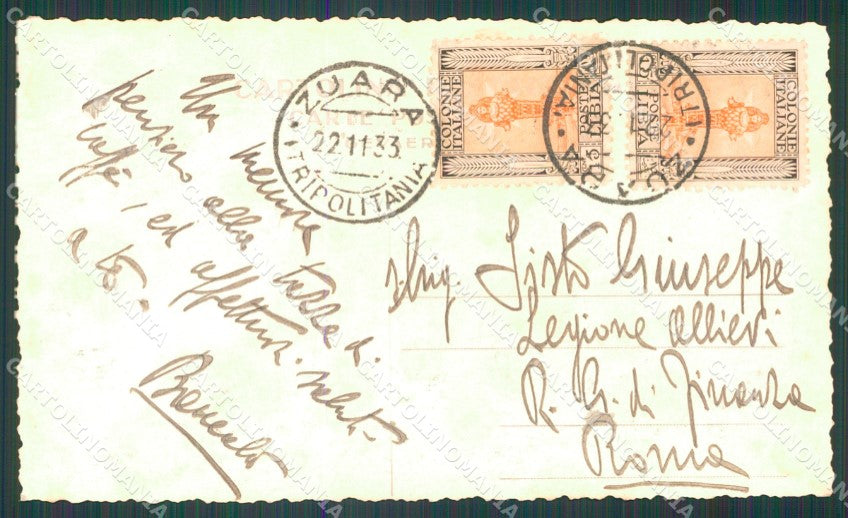 ZUARA
22.11.33.
(TRIPOLITANIA)
COLONIE
ITALIANE
POSTE
LIBIA
COLONIE
ITALIANE
POSTE
LIBIA
ZUARA
(TRIPOLITANIA)
Una mezza tazza di
pensiero alla
caffè, ed affettuosi saluti
a te.
Sig. Sisto Giuseppe
Legione Allievi
R. G. di Finanza
Roma
CARTOLINOMANIA